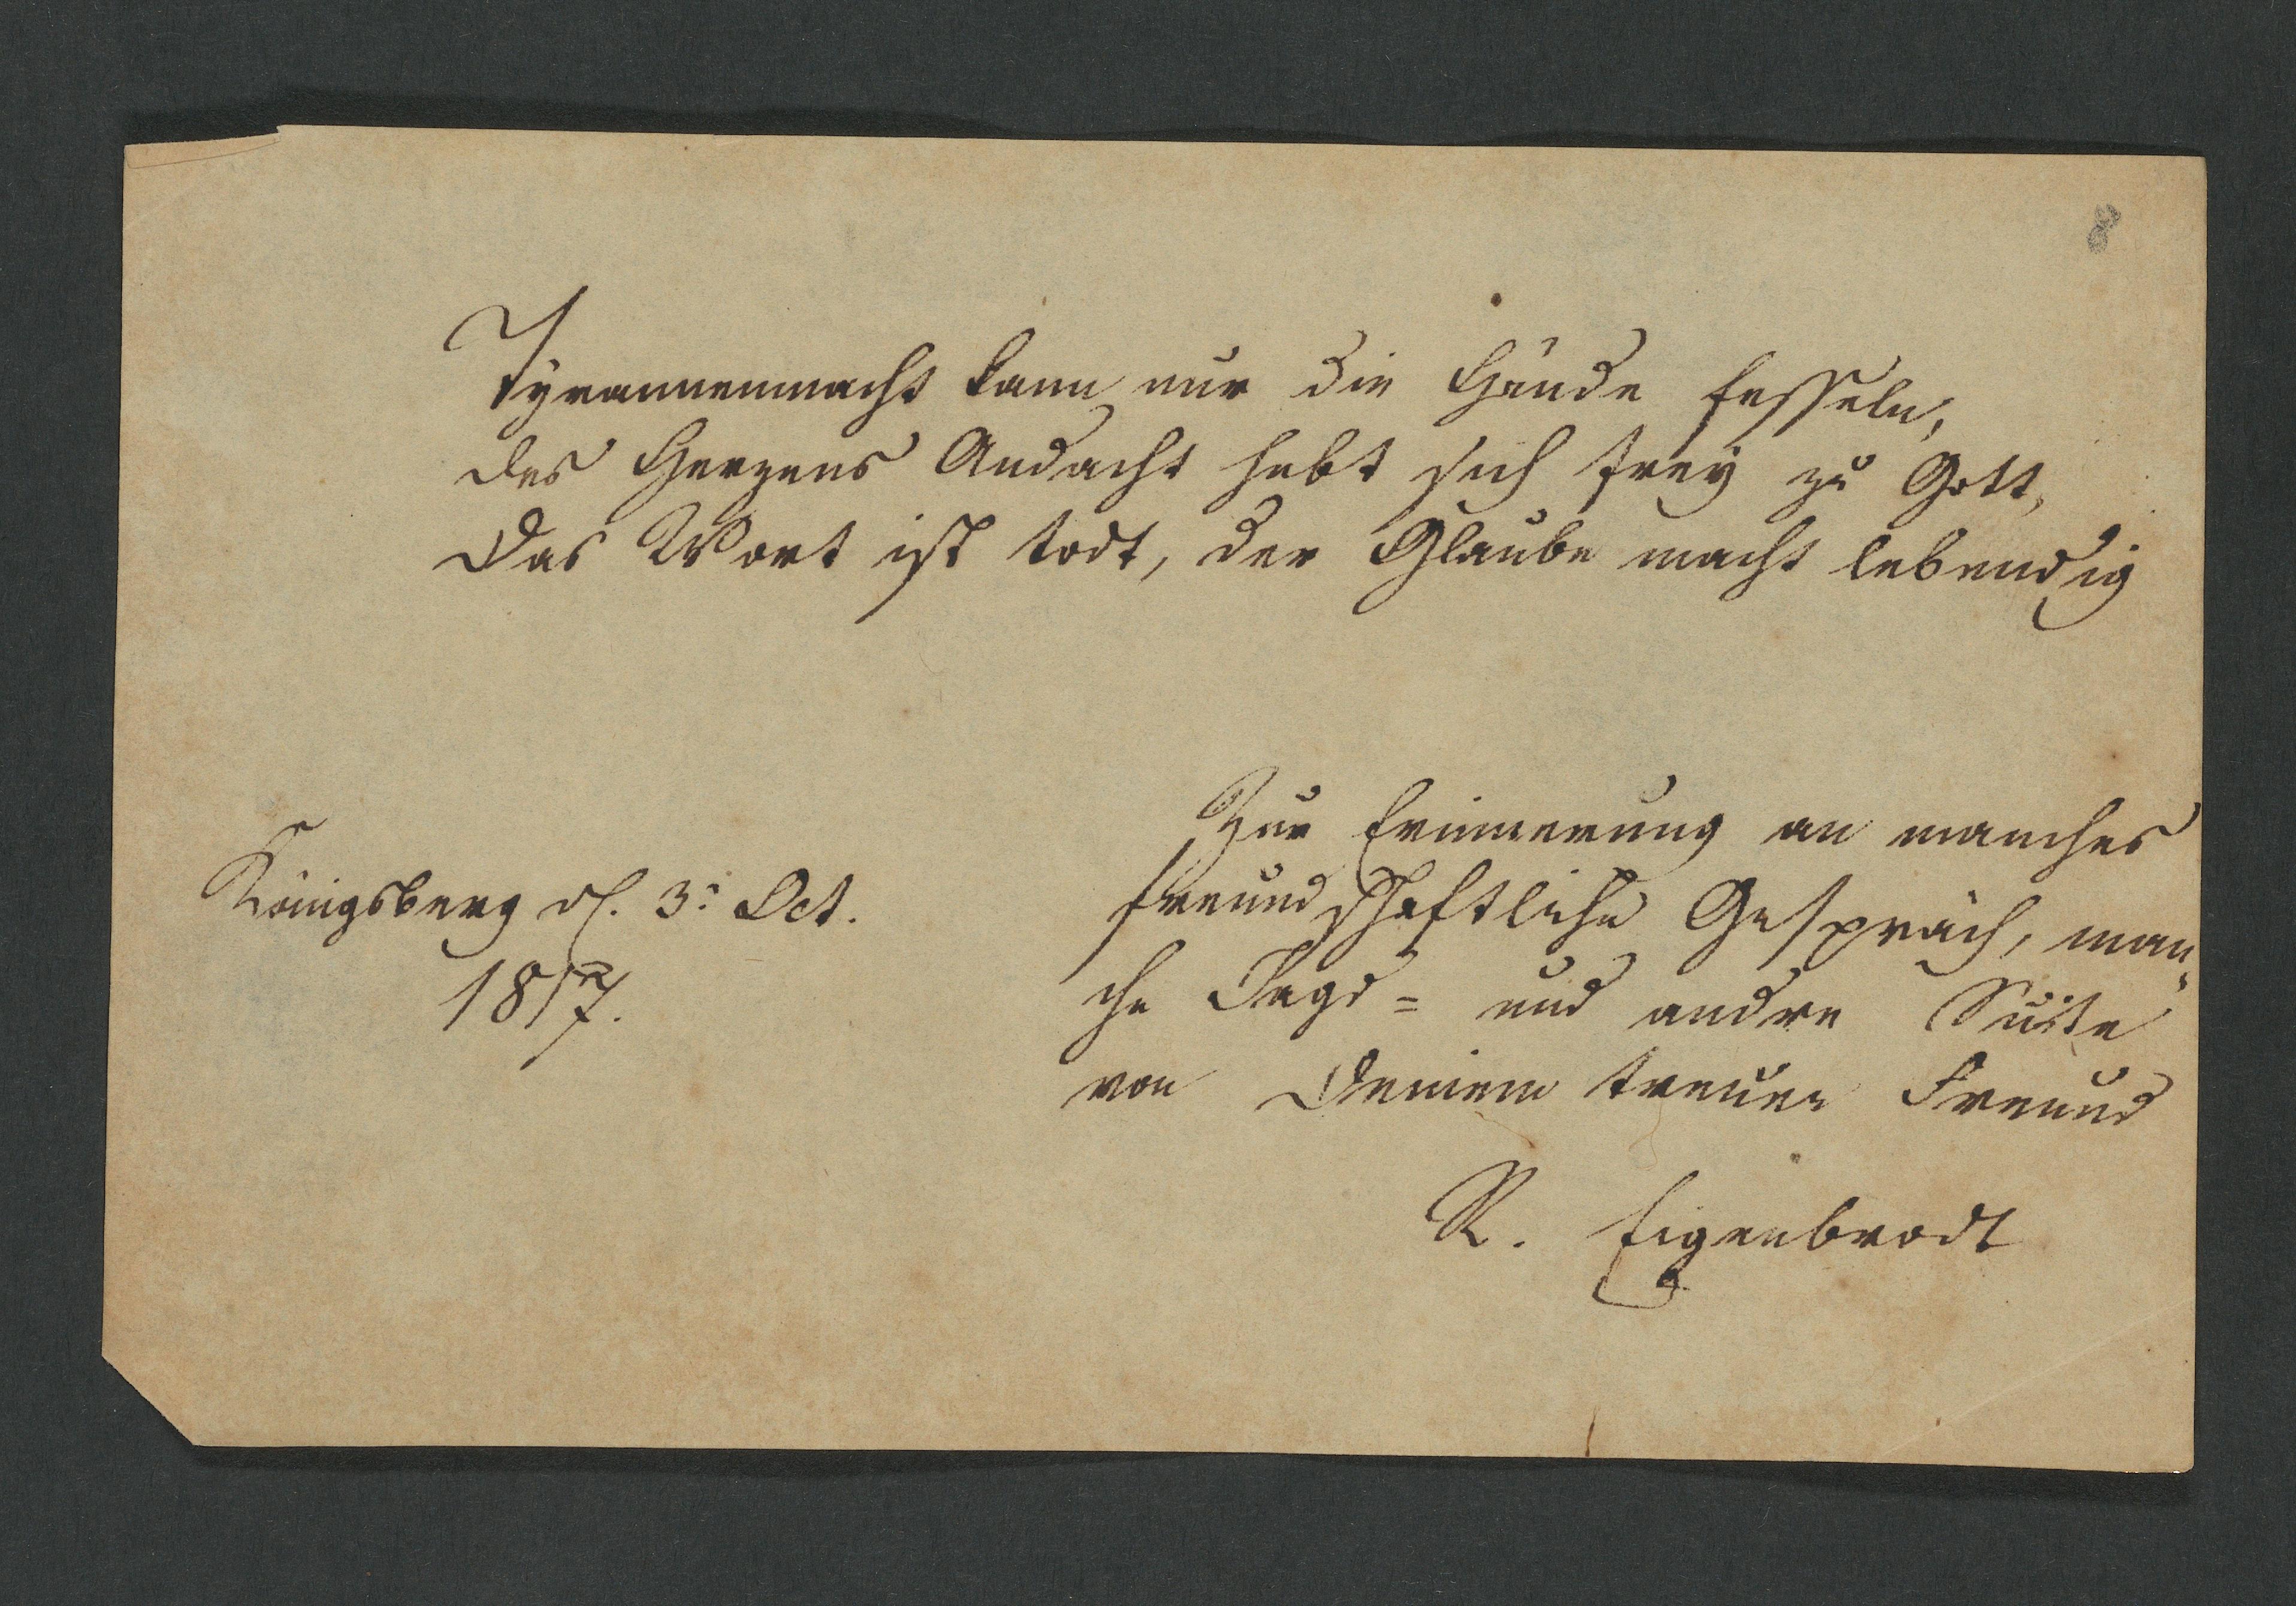 8
Tyrannenmacht kann nur die Hände fesseln,
des Herzens Andacht hebt sich frey zu Gott,
Das Wort ist todt, der Glaube macht lebendig
Zur Erinnerung an manches
freundschaftliche Gespräch, man„
che Jagd= und andre Suite
von Deinem treuen Freund
R. Eigenbrodt
Königsberg d. 3: Oct.
1817.